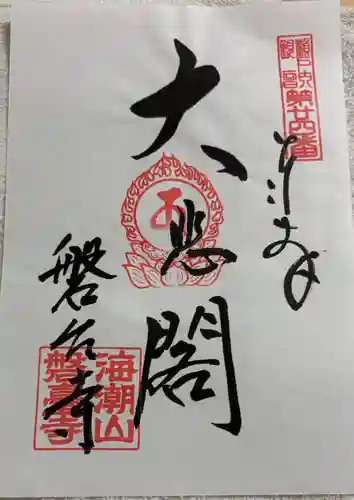 瀬戸内
観音
第廿番
奉拝
大悲閣
磐台寺
海潮山
磐臺寺